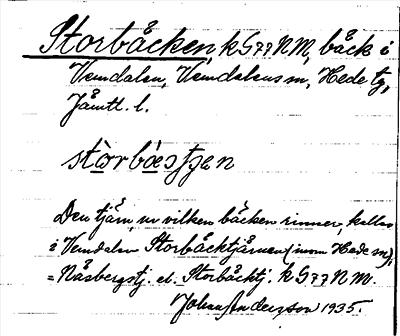 Storbäcken, k G77NM, bäck i
Vemdalen, Vemdalens sn, Hede tg,
Jämtl. l.
stòrbæ̀stjen
Den tjärn, ur vilken bäcken rinner, kallas
i Vemdalen Storbäcktjärnen (inom Hede sn),
= Nåsbergstj. el. Storbäcktj. k G77NM.
Johan Andersson 1935.